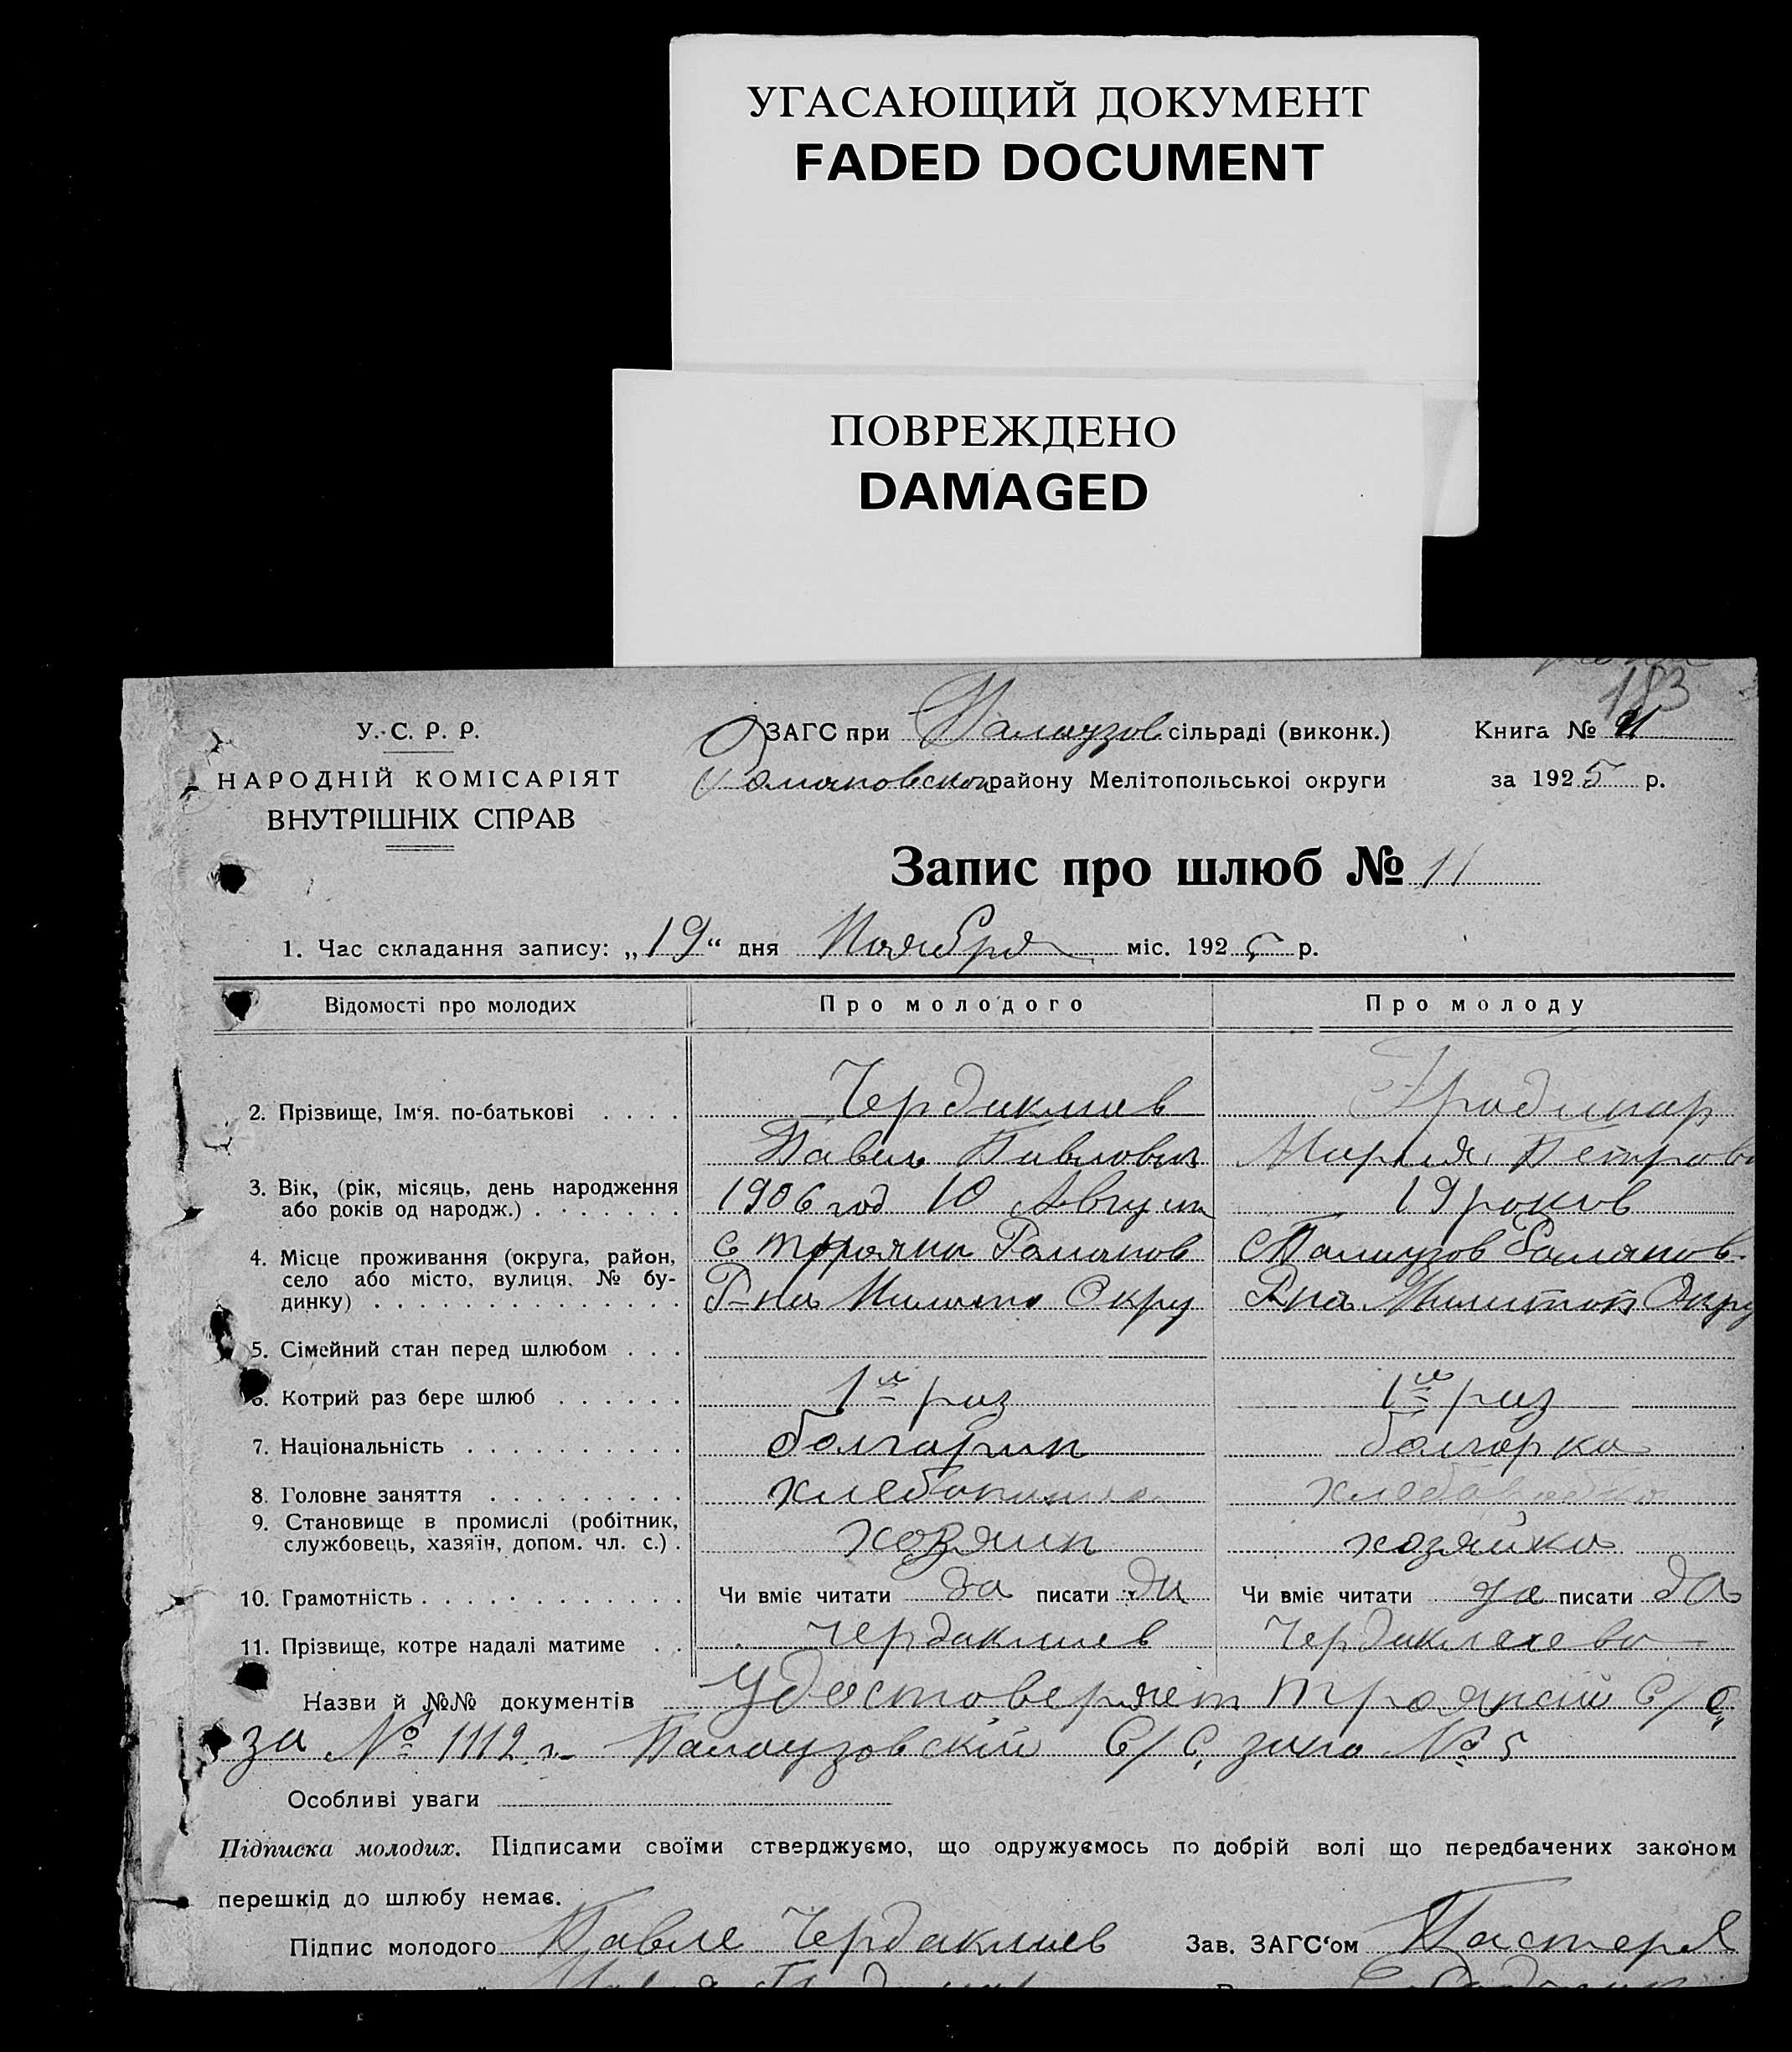 УГАСАЮЩИЙ ДОКУМЕНТ
FADED DOCUMENT
ПОВРЕЖДЕНО
DAMAGED
183
У. С. Р. Р.
НАРОДНІЙ КОМІСАРІЯТ
ВНУТРІШНІХ СПРАВ
ЗАГС при Палаузов сільраді (виконк.)
Романовскои району Мелітопольської округи
Книга №
за 1925 р.
Запис про шлюб № 11
1. Час складання запису: „19“ дня Ноября міс. 1925 р.
Відомості про молодих Про молодого Про молоду
2. Прізвище, Ім‘я. по-батькові . . . . Чердаклиев
Павел Павлович Мария Петрова
3. Вік, (рік, місяць, день народження або років од народж.) . . . . . . . 1906 год 10 Август 19 роков
4. Місце проживання (округа, район, село або місто, вулиця, № будинку) . . . . . . . . . . . . . . . с Трояна Романов с Палаузов Романов
Р-на Окру Р-на Мелитоп Окру
5. Сімейний стан перед шлюбом . . .
6. Котрий раз бере шлюб . . . . . . 1й раз 1й раз
7. Національність . . . . . . . . . . болгарин болгарка
8. Головне заняття . . . . . . . . .
9. Становище в промислі (робітник, службовець, хазяїн, допом. чл. с.) . хозяин хозяйка
10. Грамотність . . . . . . . . . . . . Чи вміє читати да писати да Чи вміє читати да писати да
11. Прізвище, котре надалі матиме . . Чердаклиев Чердаклиева
Назви й №№ документів Удостоверяет Троянсий С/С,
за № 1112 Палаузовскій С/С, № 5
Особливі уваги
Підписка молодих. Підписами своїми стверджуємо, що одружуємось по добрій волі що передбачених законом
перешкід до шлюбу немає.
Підпис молодого Павле Чердаклиев Зав. ЗАГС‘ом